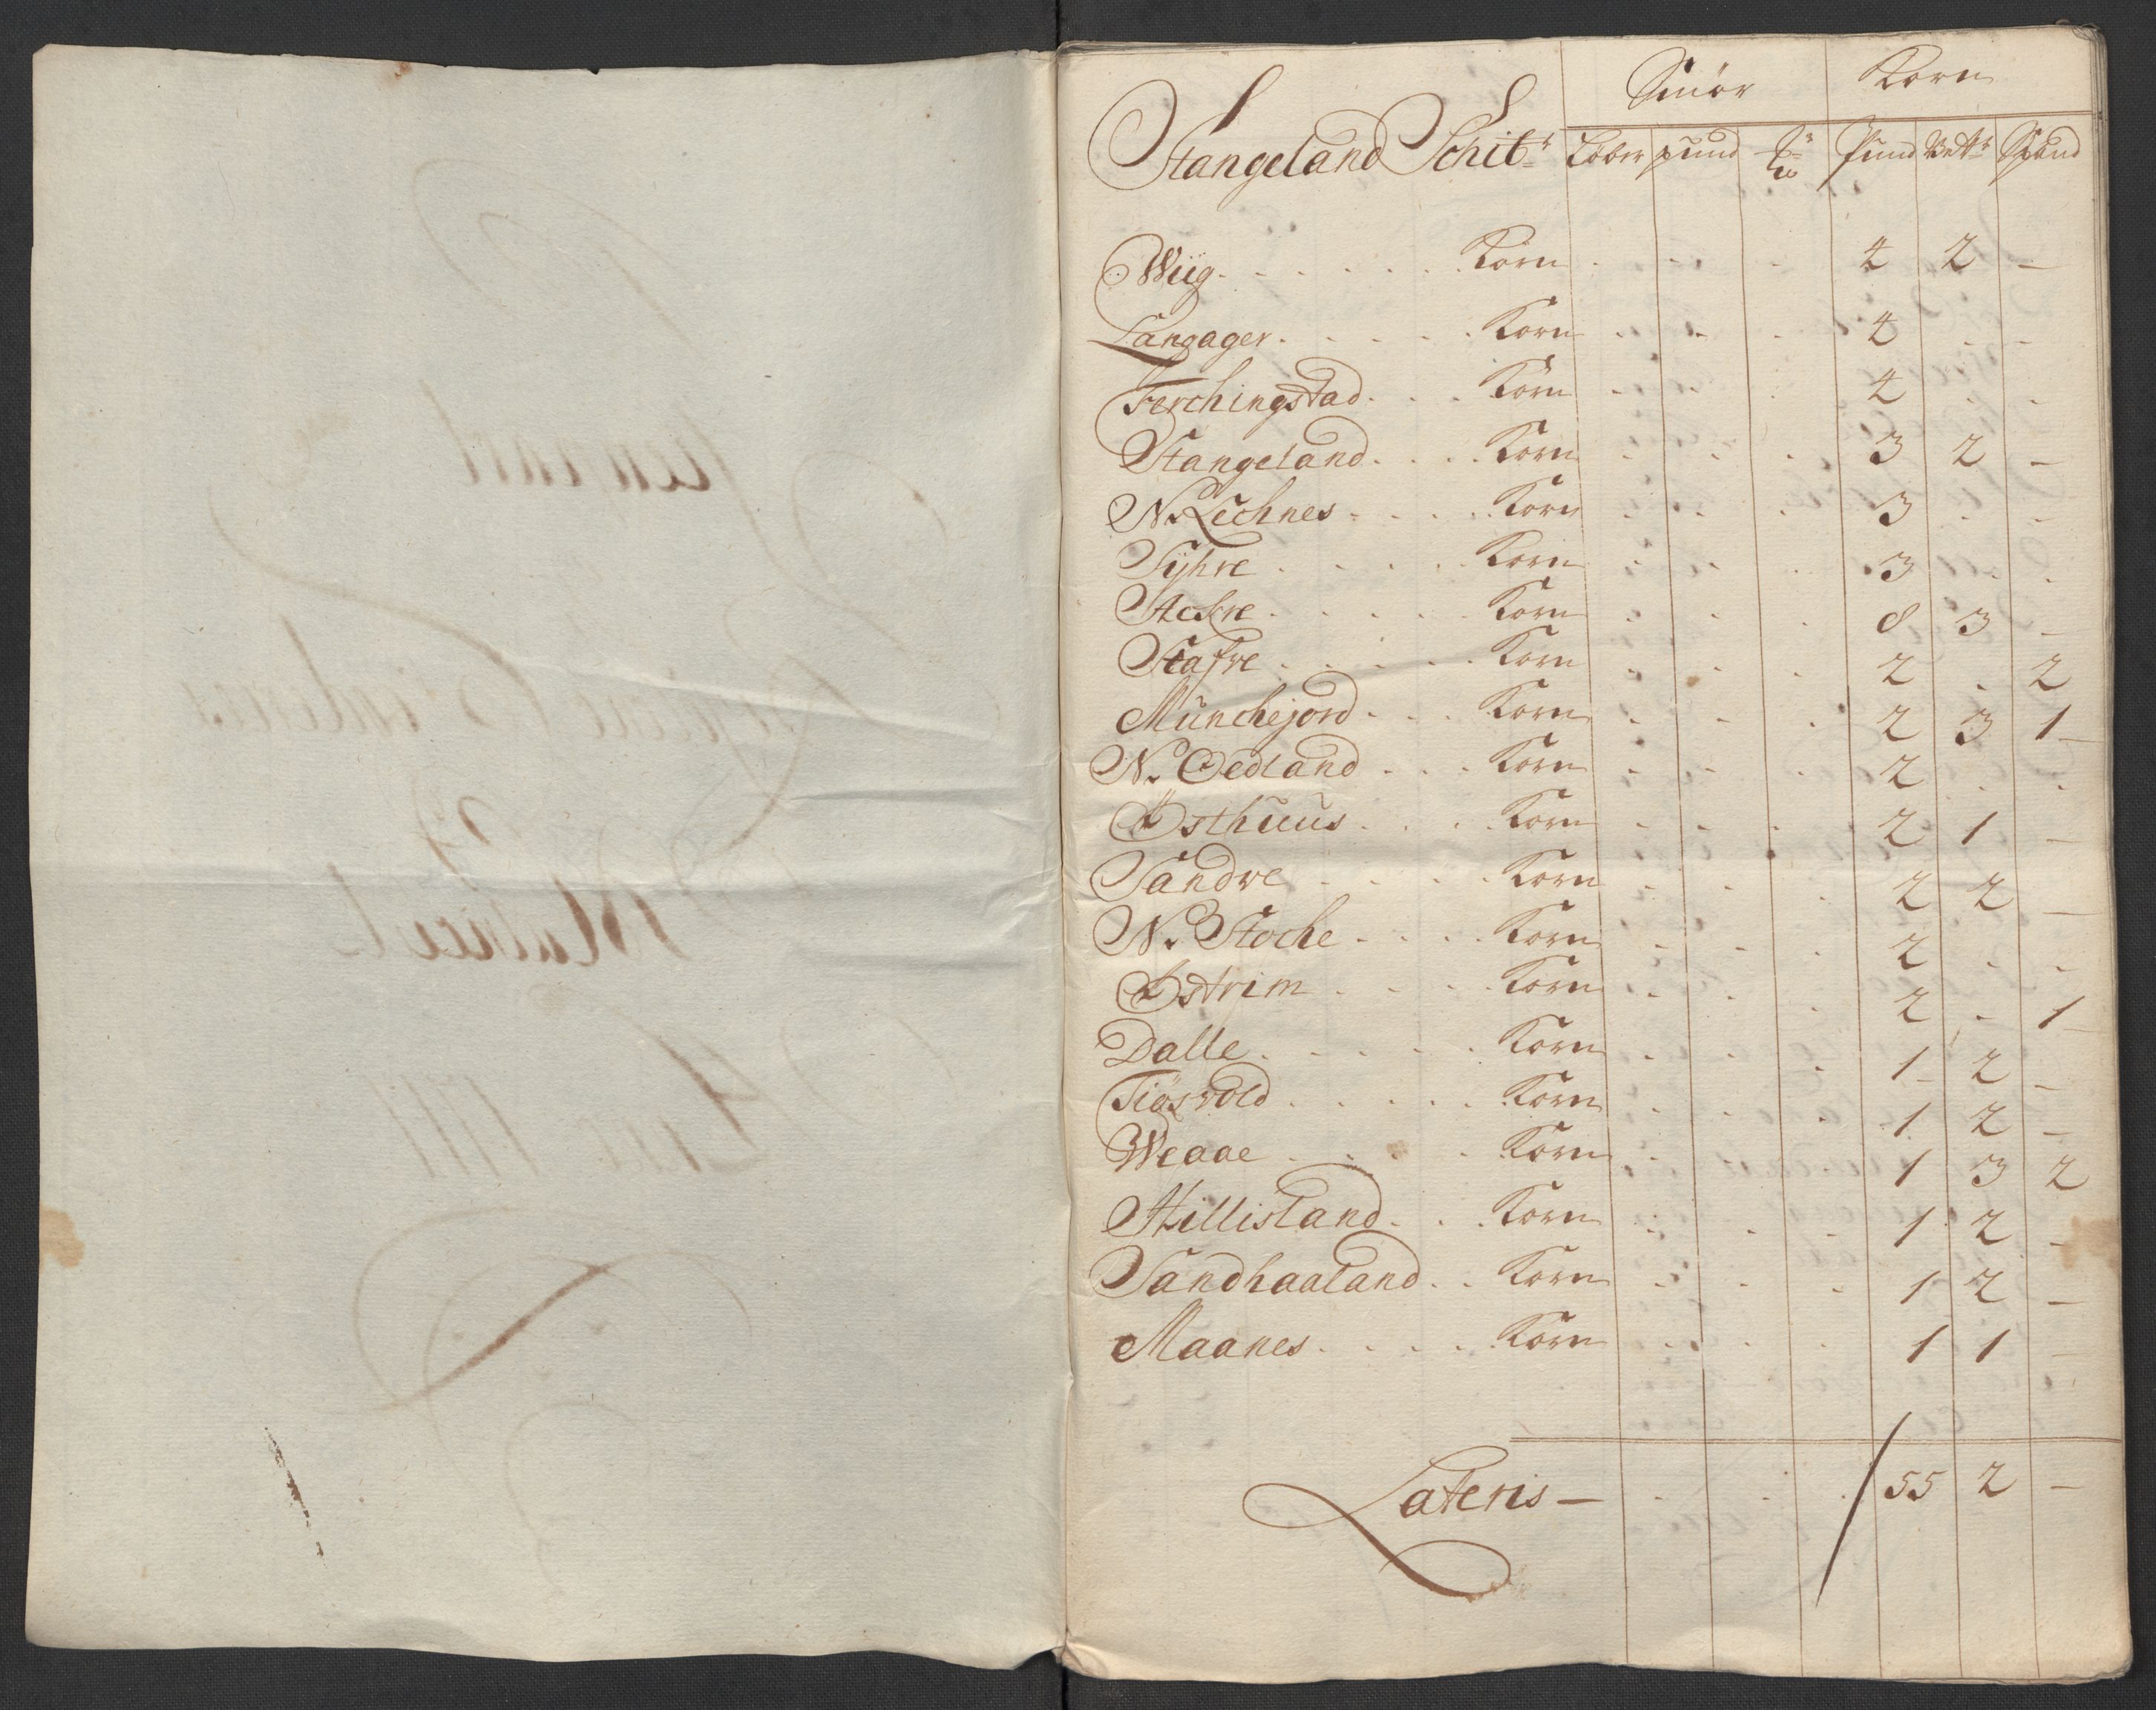 Smör Korn
Stangeland Schibr Löber pund Pund Wett Spand
Wiig Korn 4 2 –
Langager Korn 4
Ferchingstad Korn 4
Stangeland Korn 3 2 –
N. Lechnes Korn 3
Syhre Korn 3
Korn 8 3 –
Stafre Korn 2 . 2
Munchejord Korn 2 3 1
N. Oedland Korn 2
Östhuus Korn 2 1 –
Sandve Korn 2 2 –
N. Stoche Korn 2
Østrim Korn 2 . 1
Dalle Korn 1 2 –
Tiösvold Korn 1 2 –
Weaae Korn 1 3 2
Hillisland Korn 1 2 –
Sandhaaland Korn 1 2 –
Maanes Korn 1 1 –
Lateris – 55 2 –